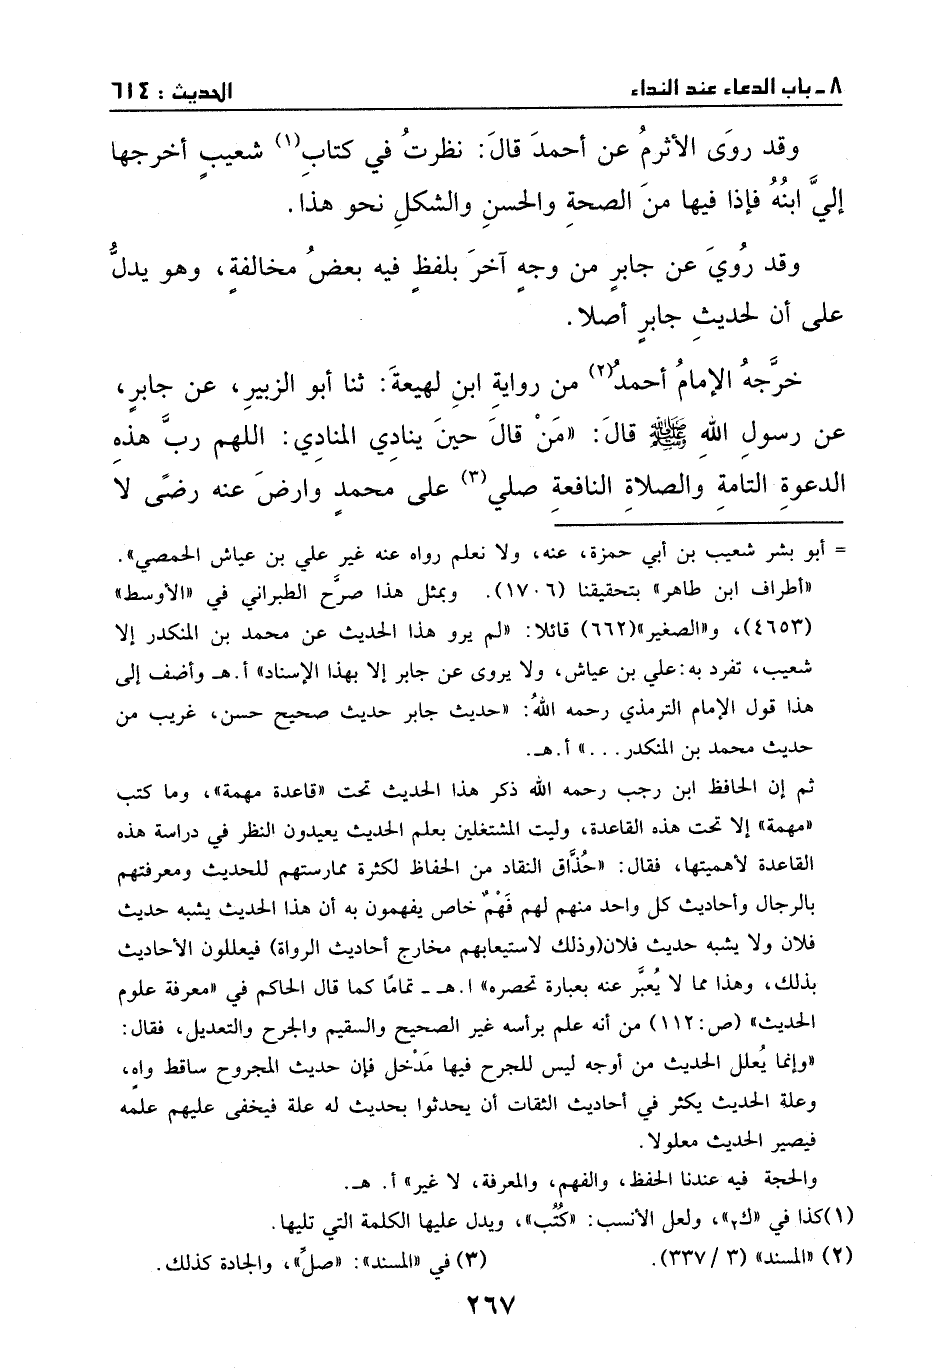 ٨ ـ باب الدعاء عند النداء الحديث : ٦١٤
وقد روَى الأثرمُ عن أحمدَ قالَ: نظرتُ في كتابِ(١) شعيبٍ أخرجها
إليَّ ابنُهُ فإذا فيها منَ الصحةِ والحسنِ والشكلِ نحو هذا.
وقد رُويَ عن جابرٍ من وجهٍ آخرَ بلفظٍ فيه بعضُ مخالفةٍ، وهو يدلُّ
على أن لحديثِ جابرٍ أصلا.
خرَّجهُ الإمامُ أحمدُ(٢) من روايةِ ابنِ لهيعةَ: ثنا أبو الزبيرِ، عن جابرٍ،
عن رسولِ اللهِ ﷺ قالَ: «مَنْ قالَ حينَ ينادِي المنادِي: اللهم ربَّ هذهِ
الدعوةِ التامةِ والصلاةِ النافعةِ صلي(٣) على محمدٍ وارضَ عنه رضًى لا
= أبو بشر شعيب بن أبي حمزة، عنه، ولا نعلم رواه عنه غير علي بن عياش الحمصي».
«أطراف ابن طاهر» بتحقيقنا (١٧٠٦). وبمثل هذا صرَّح الطبراني في «الأوسط»
(٤٦٥٣)، و«الصغير»(٦٦٢) قائلا: «لم يرو هذا الحديث عن محمد بن المنكدر إلا
شعيب، تفرد به:علي بن عياش، ولا يروى عن جابر إلا بهذا الإسناد» أ.هـ وأضف إلى
هذا قول الإمام الترمذي رحمه اللهُ: «حديث جابر حديث صحيح حسن، غريب من
حديث محمد بن المنكدر...» أ.هـ.
ثم إن الحافظ ابن رجب رحمه الله ذكر هذا الحديث تحت «قاعدة مهمة»، وما كتب
«مهمة» إلا تحت هذه القاعدة، وليت المشتغلين بعلم الحديث يعيدون النظر في دراسة هذه
القاعدة لأهميتها، فقال: «حُذَّاق النقاد من الحفاظ لكثرة ممارستهم للحديث ومعرفتهم
بالرجال وأحاديث كل واحد منهم لهم فَهْمٌ خاص يفهمون به أن هذا الحديث يشبه حديث
فلان ولا يشبه حديث فلان(وذلك لاستيعابهم مخارج أحاديث الرواة) فيعللون الأحاديث
بذلك، وهذا مما لا يُعبَّر عنه بعبارة تحصره» ا.هـ ـ تمامًا كما قال الحاكم في «معرفة علوم
الحديث» (ص:١١٢) من أنه علم برأسه غير الصحيح والسقيم والجرح والتعديل، فقال:
«وإنما يُعلل الحديث من أوجه ليس للجرح فيها مَدْخل فإن حديث المجروح ساقط واهٍ،
وعلة الحديث يكثر في أحاديث الثقات أن يحدثوا بحديث له علة فيخفى عليهم علمه
فيصير الحديث معلولا.
والحجة فيه عندنا الحفظ، والفهم، والمعرفة، لا غير» أ. هـ.
(١)كذا في «ك٢»، ولعل الأنسب: «كُتُب»، ويدل عليها الكلمة التي تليها.
(٢) «المسند» (٣ / ٣٣٧). (٣) في «المسند»: «صلِّ»، والجادة كذلك.
٢٦٧